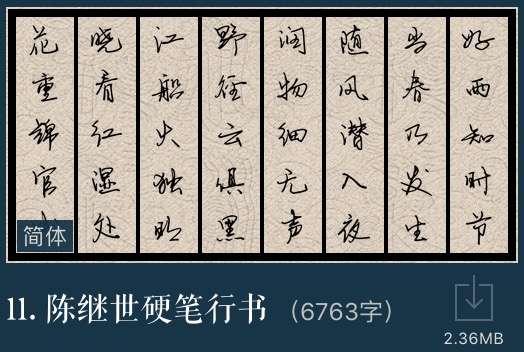 好雨知时节
当春乃发生
随风潜入夜
润物细无声
野径云俱黑
江船火独明
晓看红湿处
花重锦官
简体
11. 陈继世硬笔行书 (6763字)
2.36MB